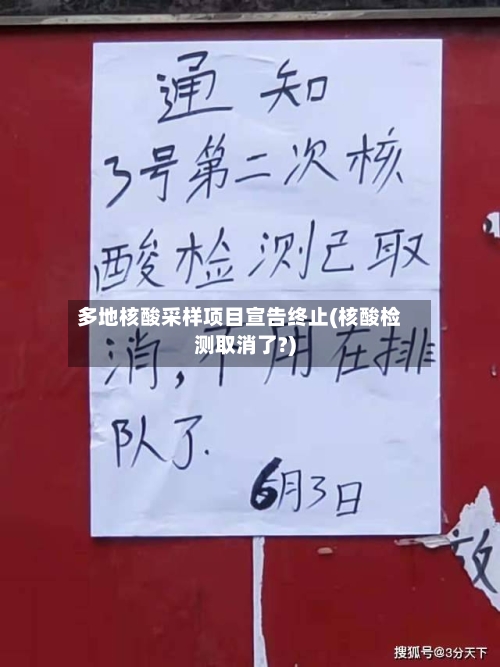 通知
3号第二次核
酸检测已取
多地核酸采样项目宣告终止(核酸检
测取消了?)
消，不用在排
队了.
6月3日
搜狐号@3分天下